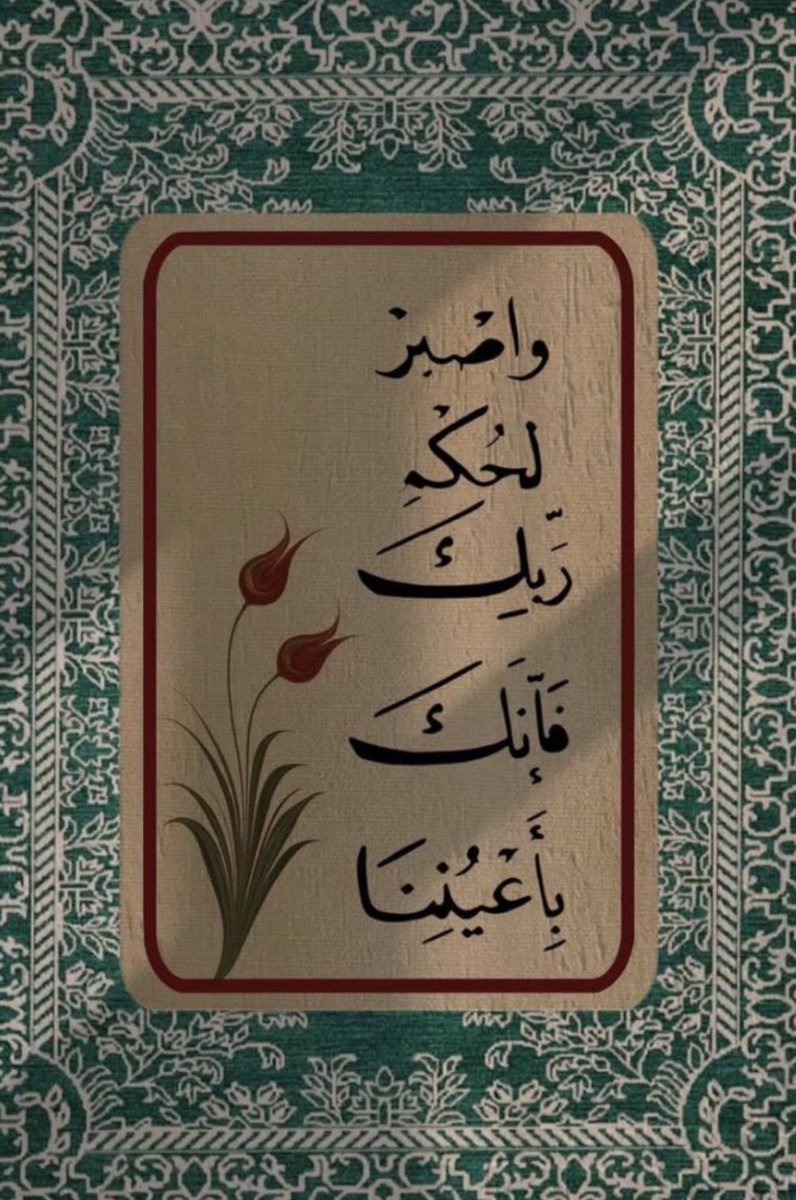 واصْبِرْ
لحُكْمِ
رَبِّكَ
فَإِنَّكَ
بِأَعْيُنِنَا